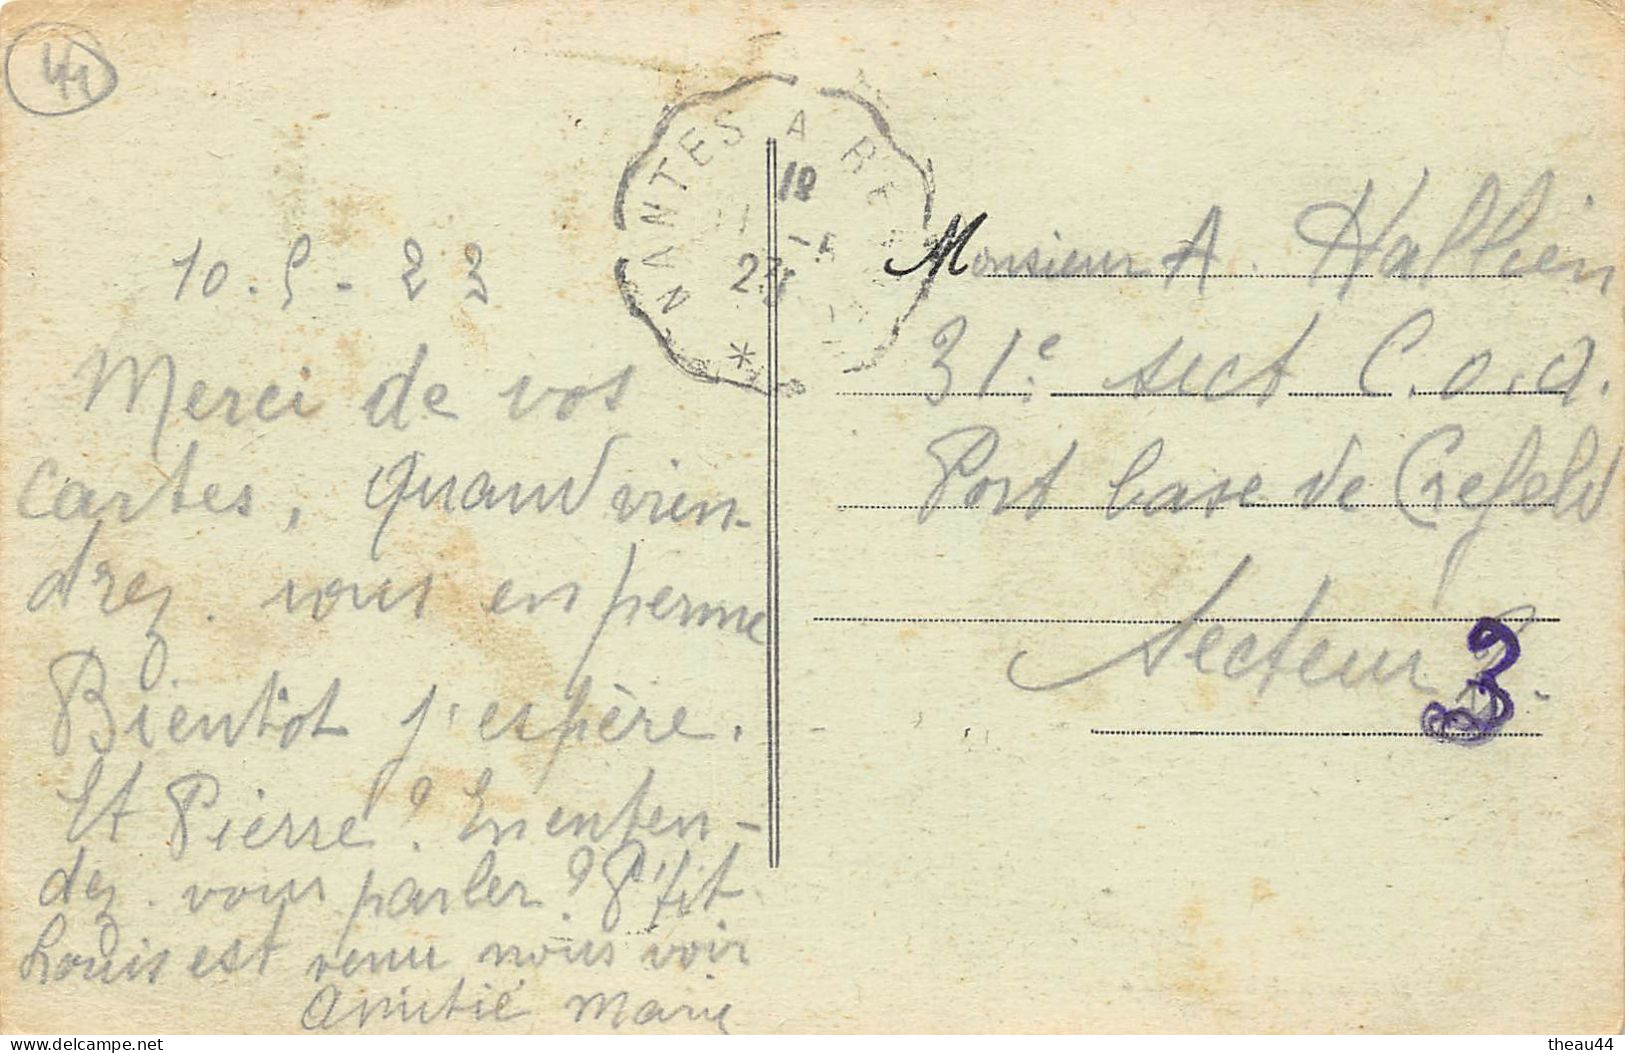 44
NANTES A RE
18
-5
23
10.5.23
Merci de vos
cartes, quand vien-
drez. vous en perme
Bientôt j'espère.
St Pierre? En enten-
dez. vous parler? P'tit
Louis est venu nous voir
Amitié Marie
Monsieur A. Hallien
31e sect C.O.A.
Port base de Crefeld
Secteur 3
delcampe.net
theau44